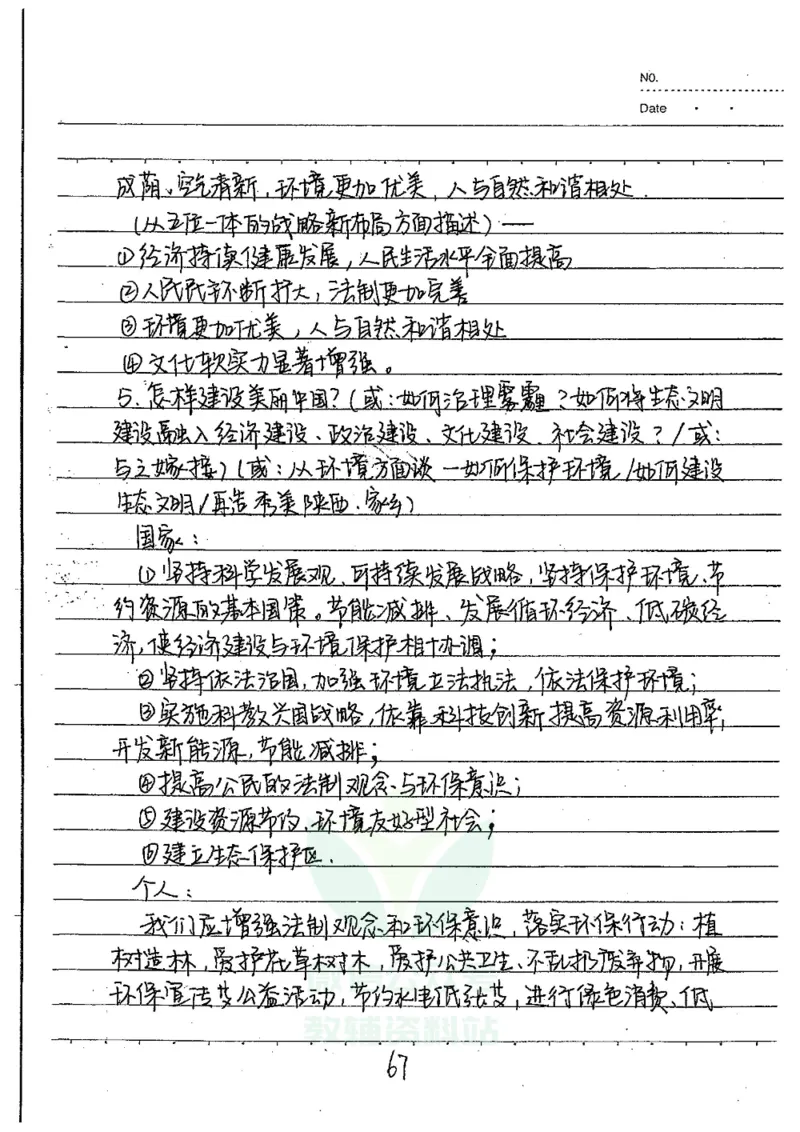 No.
Date
成荫、空气清新,环境更加优美,人与自然和谐相处.
(从五位一体的战略新布局方面描述)——
①经济持续健康发展,人民生活水平全面提高
②人民民主不断扩大,法制更加完善
③环境更加优美,人与自然和谐相处
④文化软实力显著增强。
5.怎样建设美丽中国?(或:如何治理雾霾?如何将生态文明
建设融入经济建设、政治建设、文化建设、社会建设?/或:
与之嫁接)(或:从环境方面谈—如何保护环境/如何建设
生态文明/再造秀美陕西.家乡)
国家:
①坚持科学发展观、可持续发展战略,坚持保护环境、节
约资源的基本国策。节能减排、发展循环经济、低碳经
济,使经济建设与环境保护相协调;
②坚持依法治国,加强环境立法执法,依法保护环境;
③实施科教兴国战略,依靠科技创新提高资源利用率,
开发新能源,节能减排;
④提高公民的法制观念与环保意识;
⑤建设资源节约、环境友好型社会;
⑥建立生态保护区.
个人:
我们应增强法制观念和环保意识,落实环保行动:植
树造林,爱护花草树木,爱护公共卫生、不乱扔废弃物,开展
环保宣传等公益活动,节约水电低张等,进行绿色消费、低
教辅资料站
67